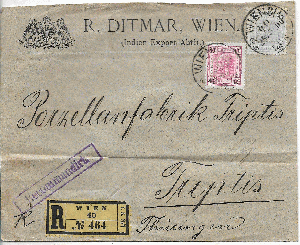 R. DITMAR, WIEN.
(Indian Export Abth.)
WIEN
Porzellanfabrik Triptis
Triptis
Thüringen
Rekommandirt
R
WIEN
40
№ 464